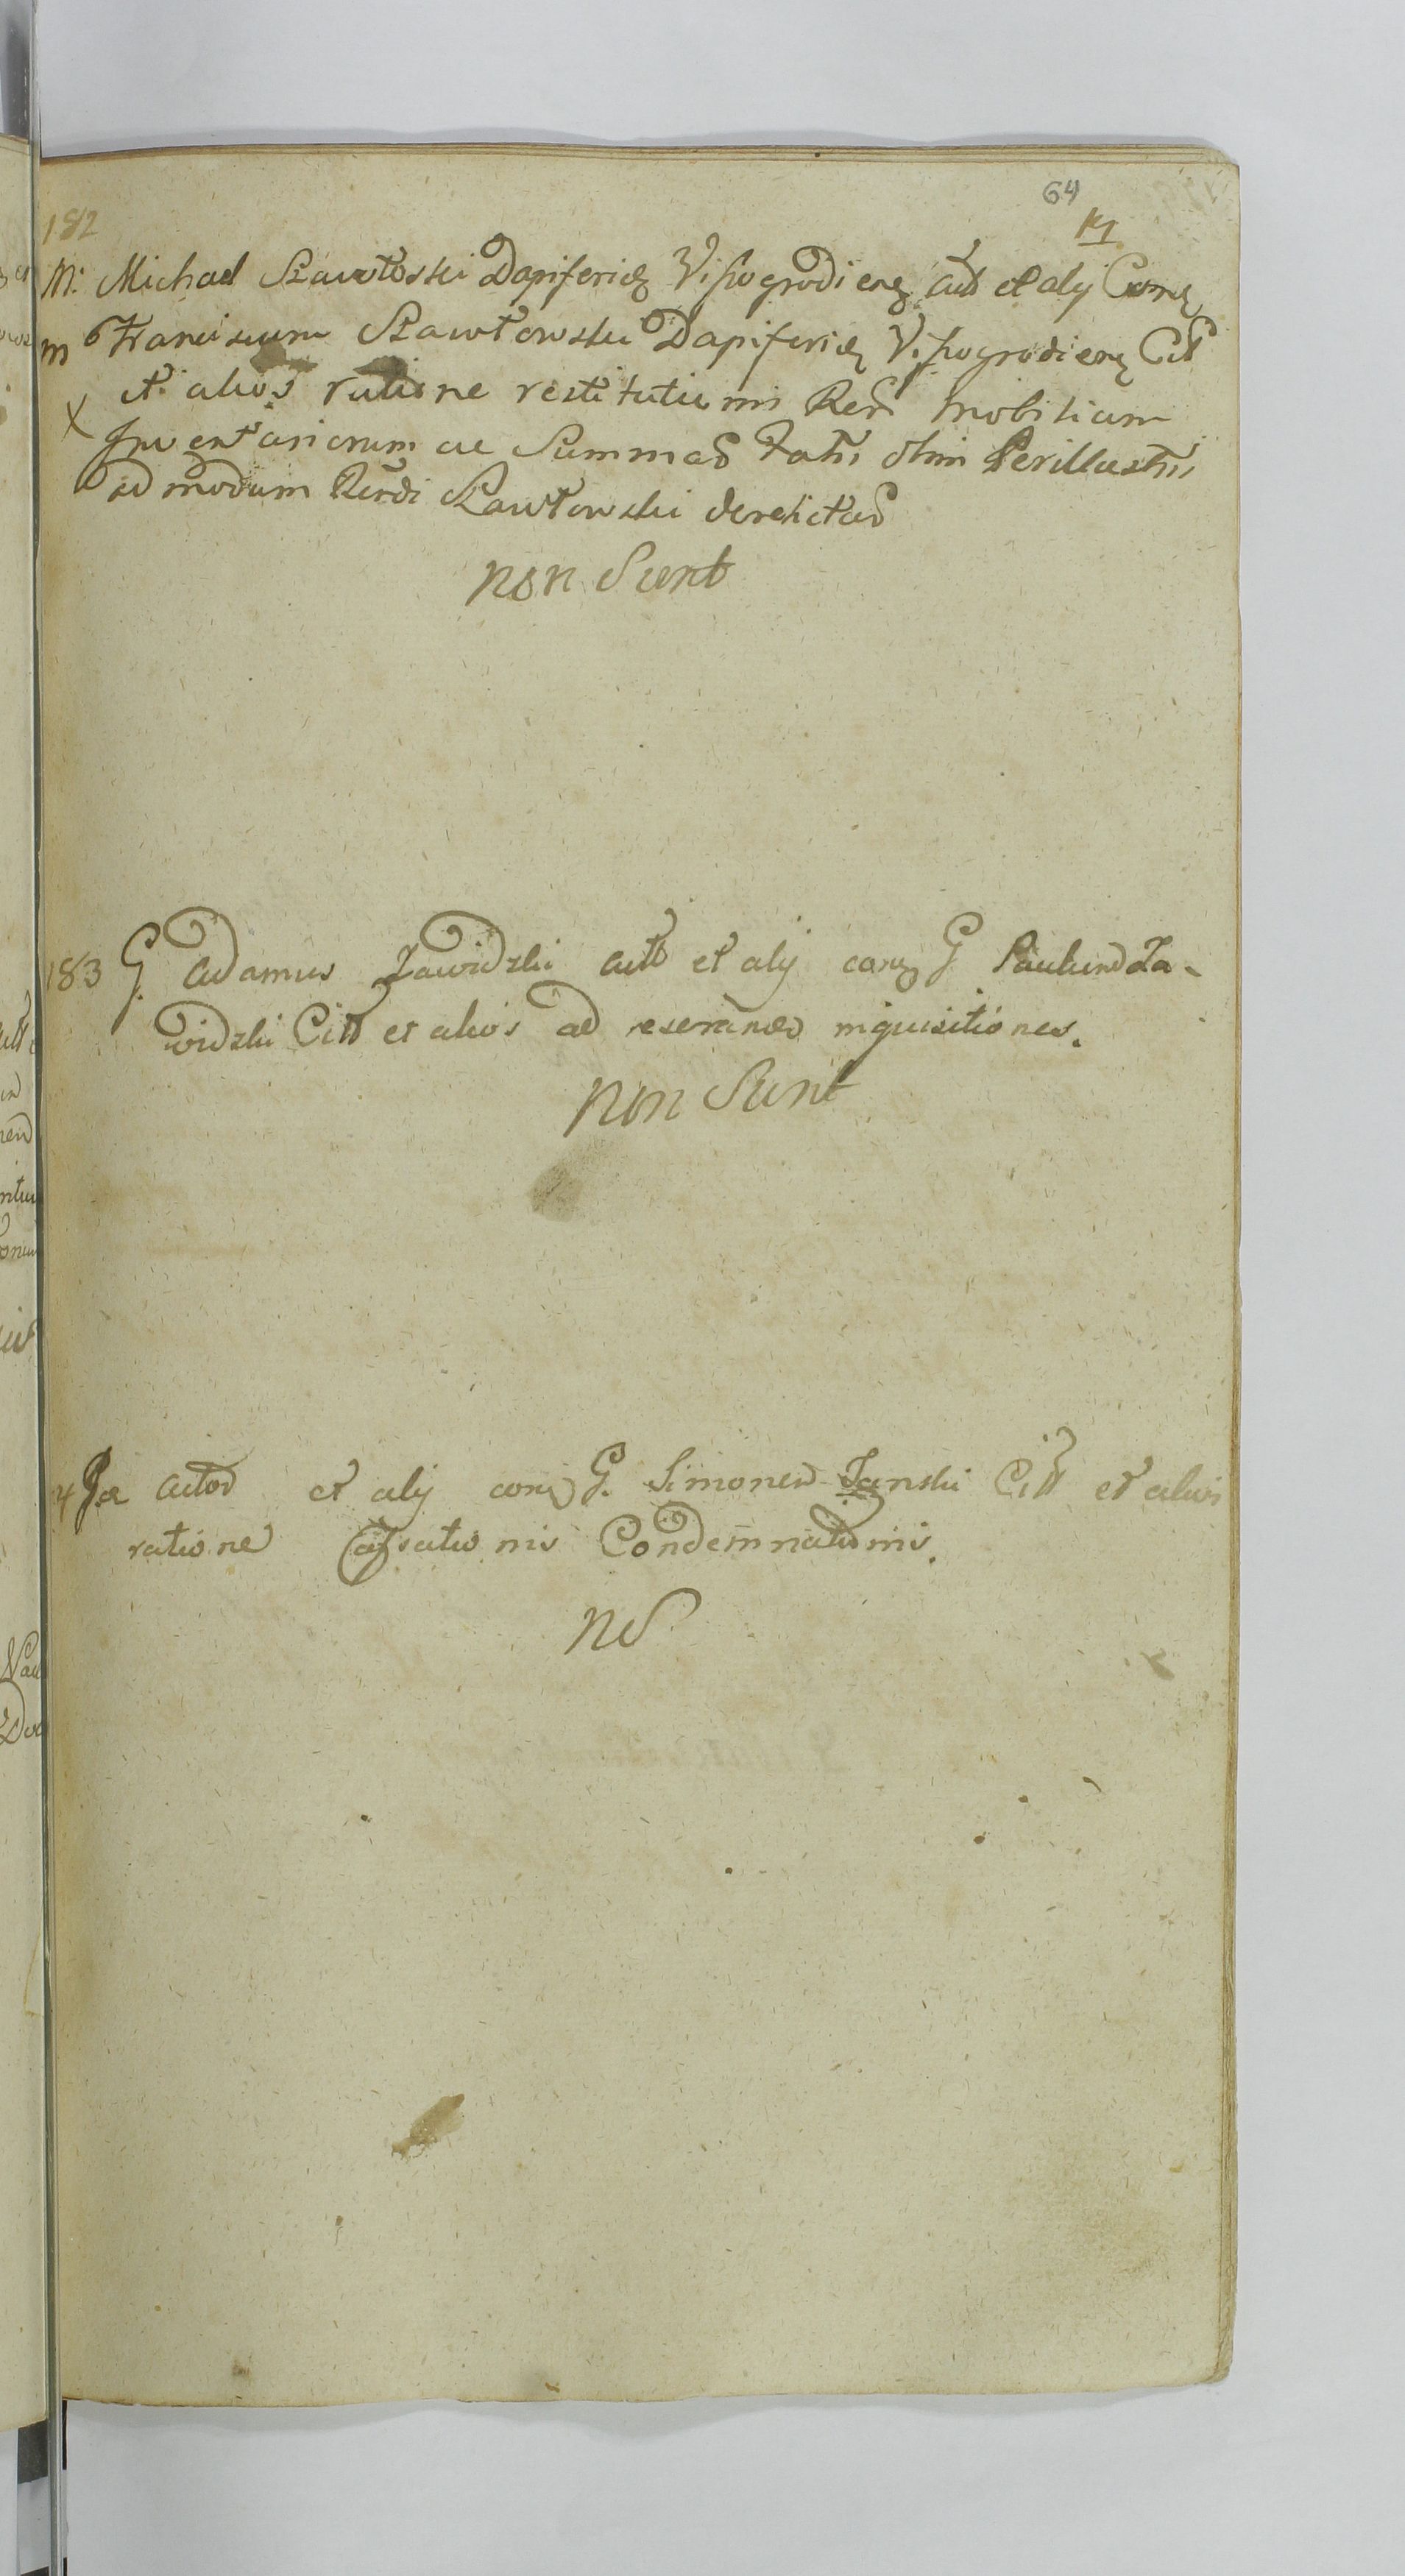 64
182
M. Michael Szawłoski Dapiferid Visogrodien Act et alij Contra
M Franciscum Szawłowski Dapiferid Visogrodien Cit
et alios ratione restitutionis Rerum mobilium
X Inventariorum ac Summas olim Perillustris
admodum Rendi Szawłowski derelictas
non Sunt
183 G. Adamus Zawidzki Actt et alij con G Paulum Za-
widzki Citt et alios ad reserandas inquisitiones.
non Sunt
4 Act et alij con G. Simonem Janski Citt et alios
ratione Cassationis Condemnationis.
NS